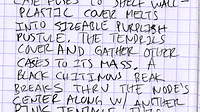 CASE FUSES TO SHELF WALL-
PLASTIC COVER MELTS
INTO SIZEABLE PURPLISH
PUSTULE. THE TENDRILS
COVER AND GATHER OTHER
CASES TO ITS MASS. A
BLACK CHITINOUS BEAK
BREAKS THRU THE NODE'S
CENTER ALONG W/ ANOTHER